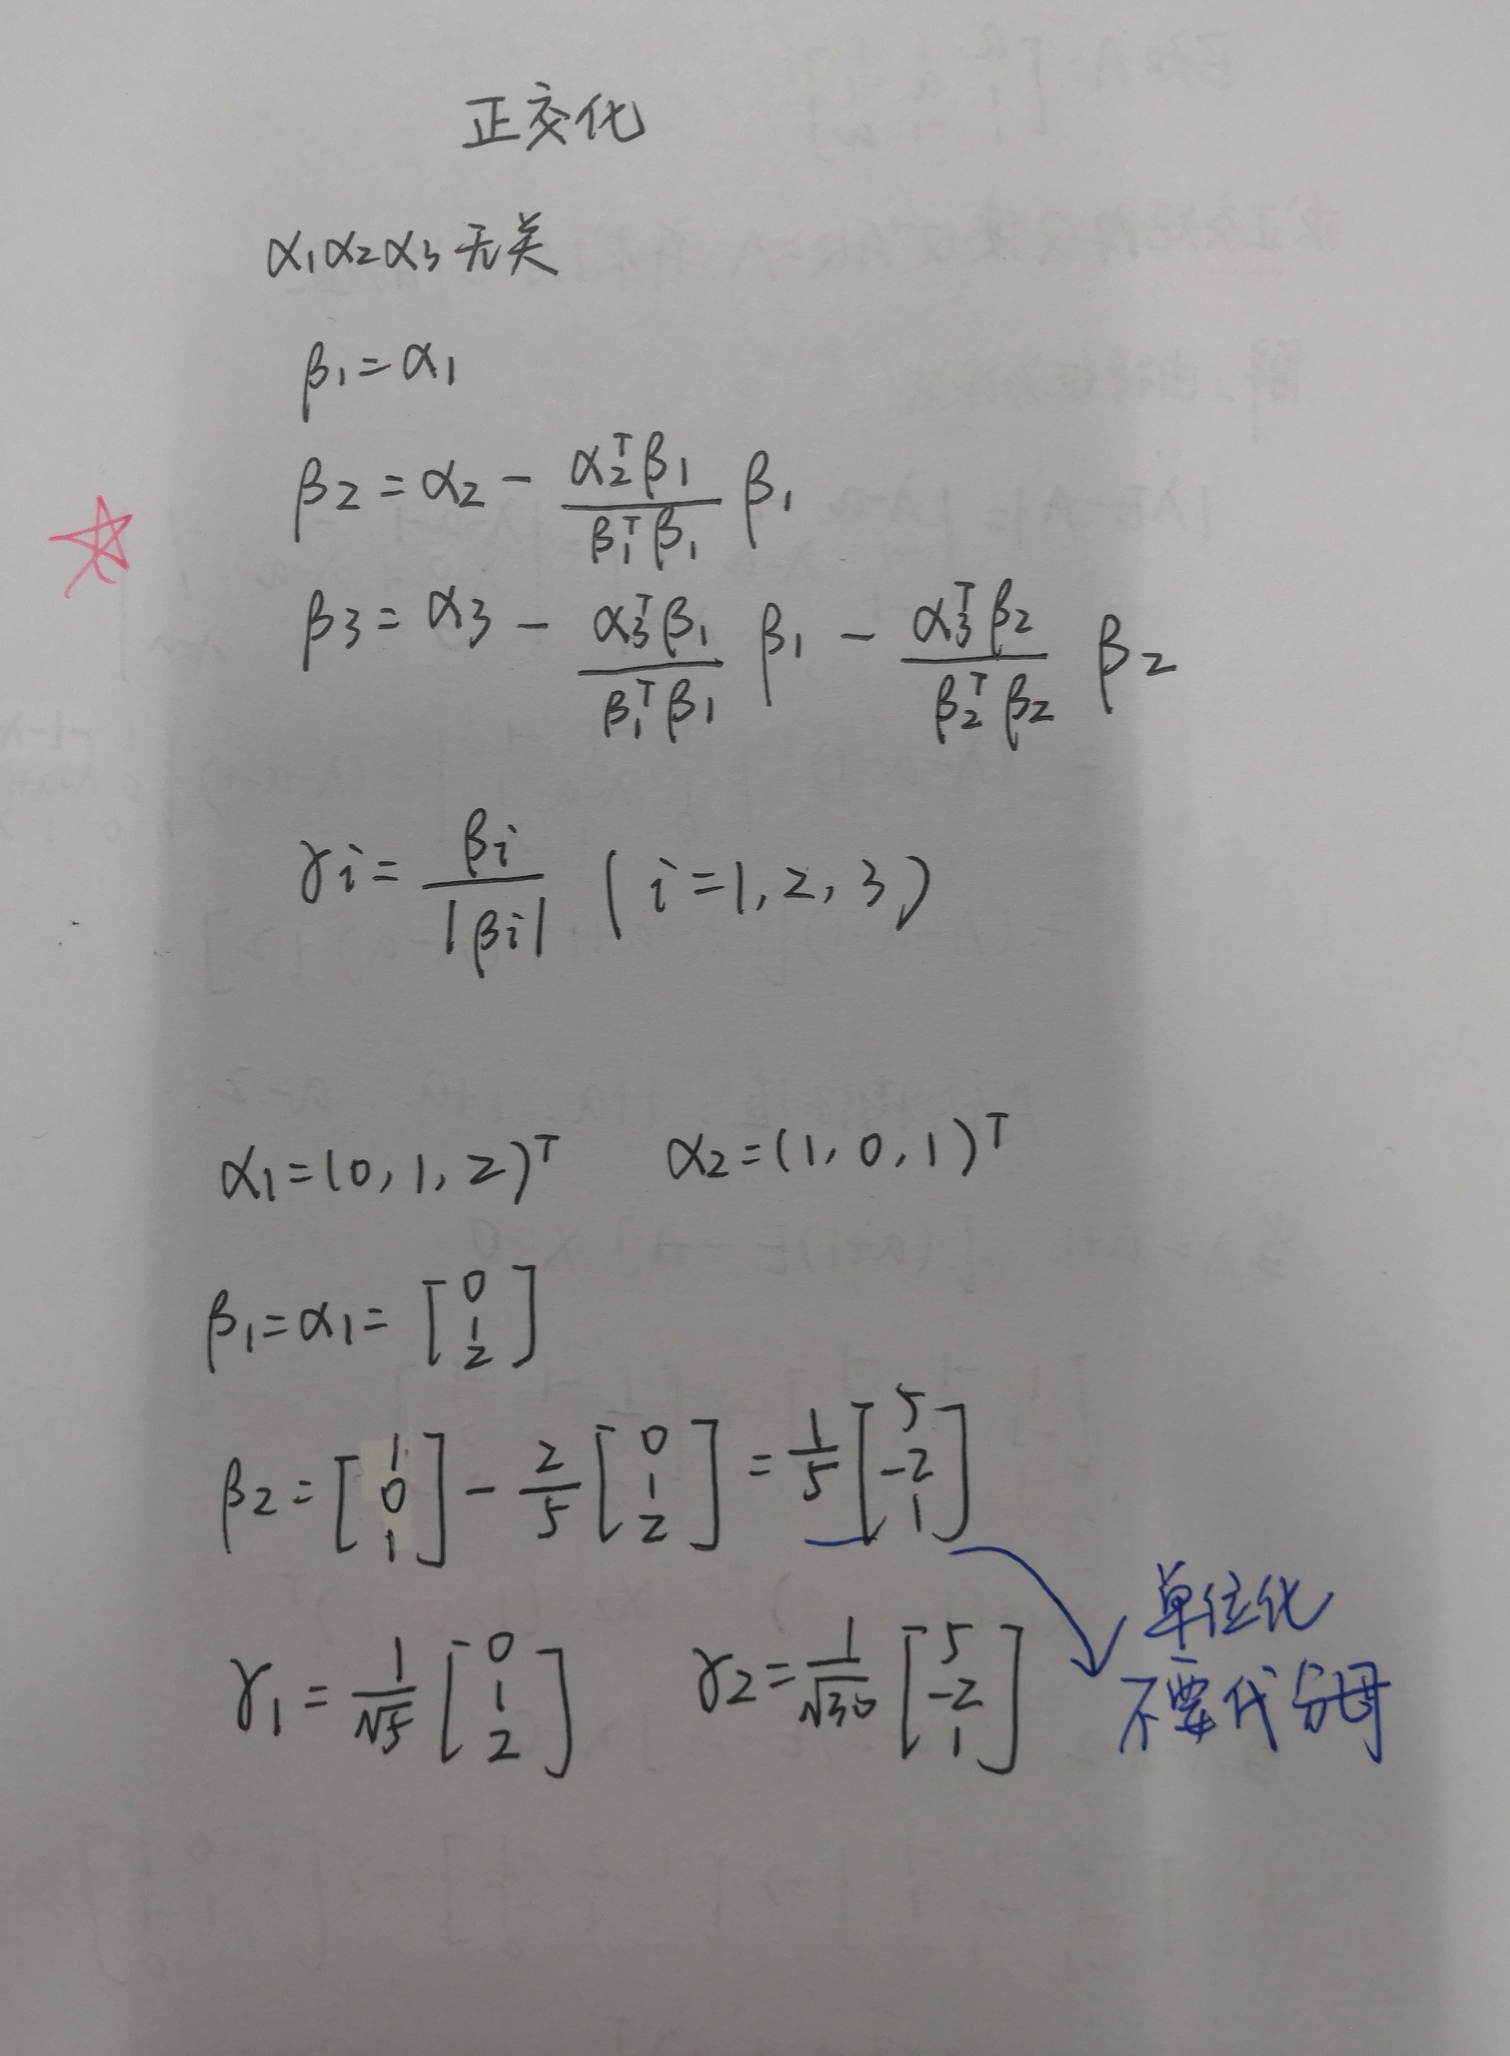 正交化
α₁α₂α₃无关
β₁=α₁
β₂=α₂-(α₂ᵀβ₁)/(β₁ᵀβ₁) β₁
β₃=α₃-(α₃ᵀβ₁)/(β₁ᵀβ₁) β₁-(α₃ᵀβ₂)/(β₂ᵀβ₂) β₂
γi=βi/|βi| (i=1,2,3)
α₁=(0,1,2)ᵀ α₂=(1,0,1)ᵀ
β₁=α₁=[0 1 2]
β₂=[1 0 1]-2/5[0 1 2]=1/5[5 -2 1]
单位化
γ₁=1/√5[0 1 2] γ₂=1/√30[5 -2 1]
不要代分母